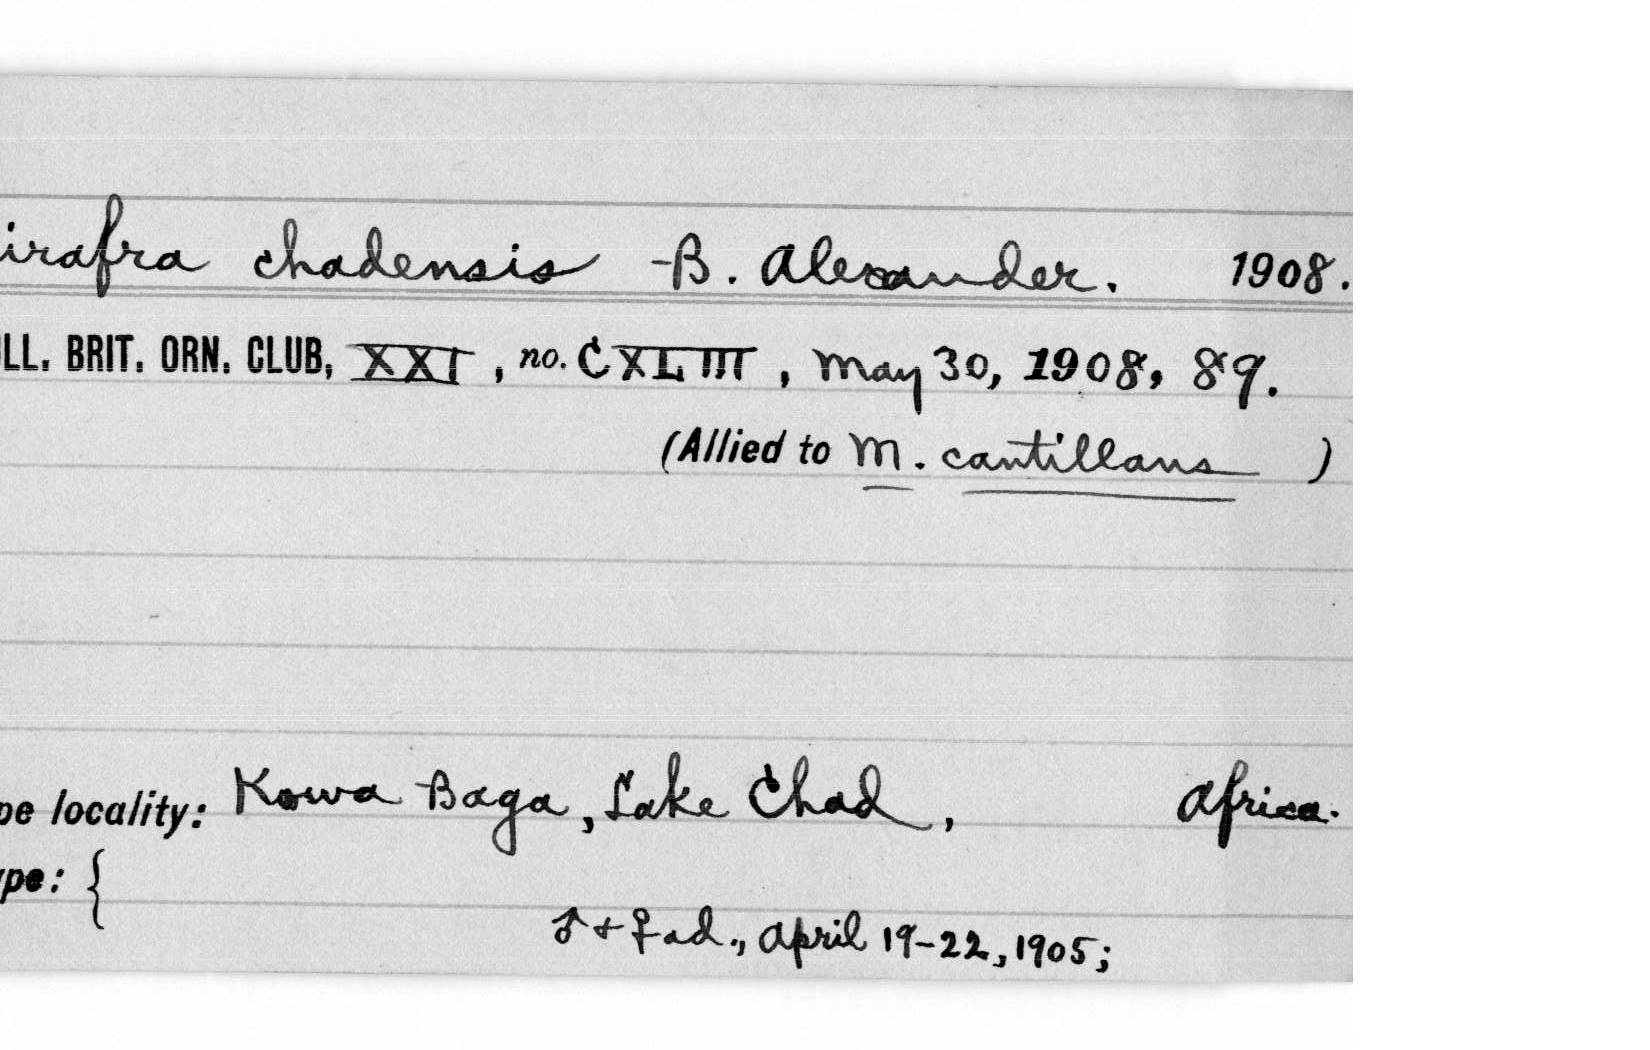 irafra chadensis - B. Alexander. 1908.
LL. BRIT. ORN. CLUB, XXI, no. CXLIII, May 30, 1908, 89.
(Allied to M. cantillans )
pe locality: Kowa Baga, Lake Chad, Africa.
ype: {
♂ + ♀ ad., April 19-22, 1905;